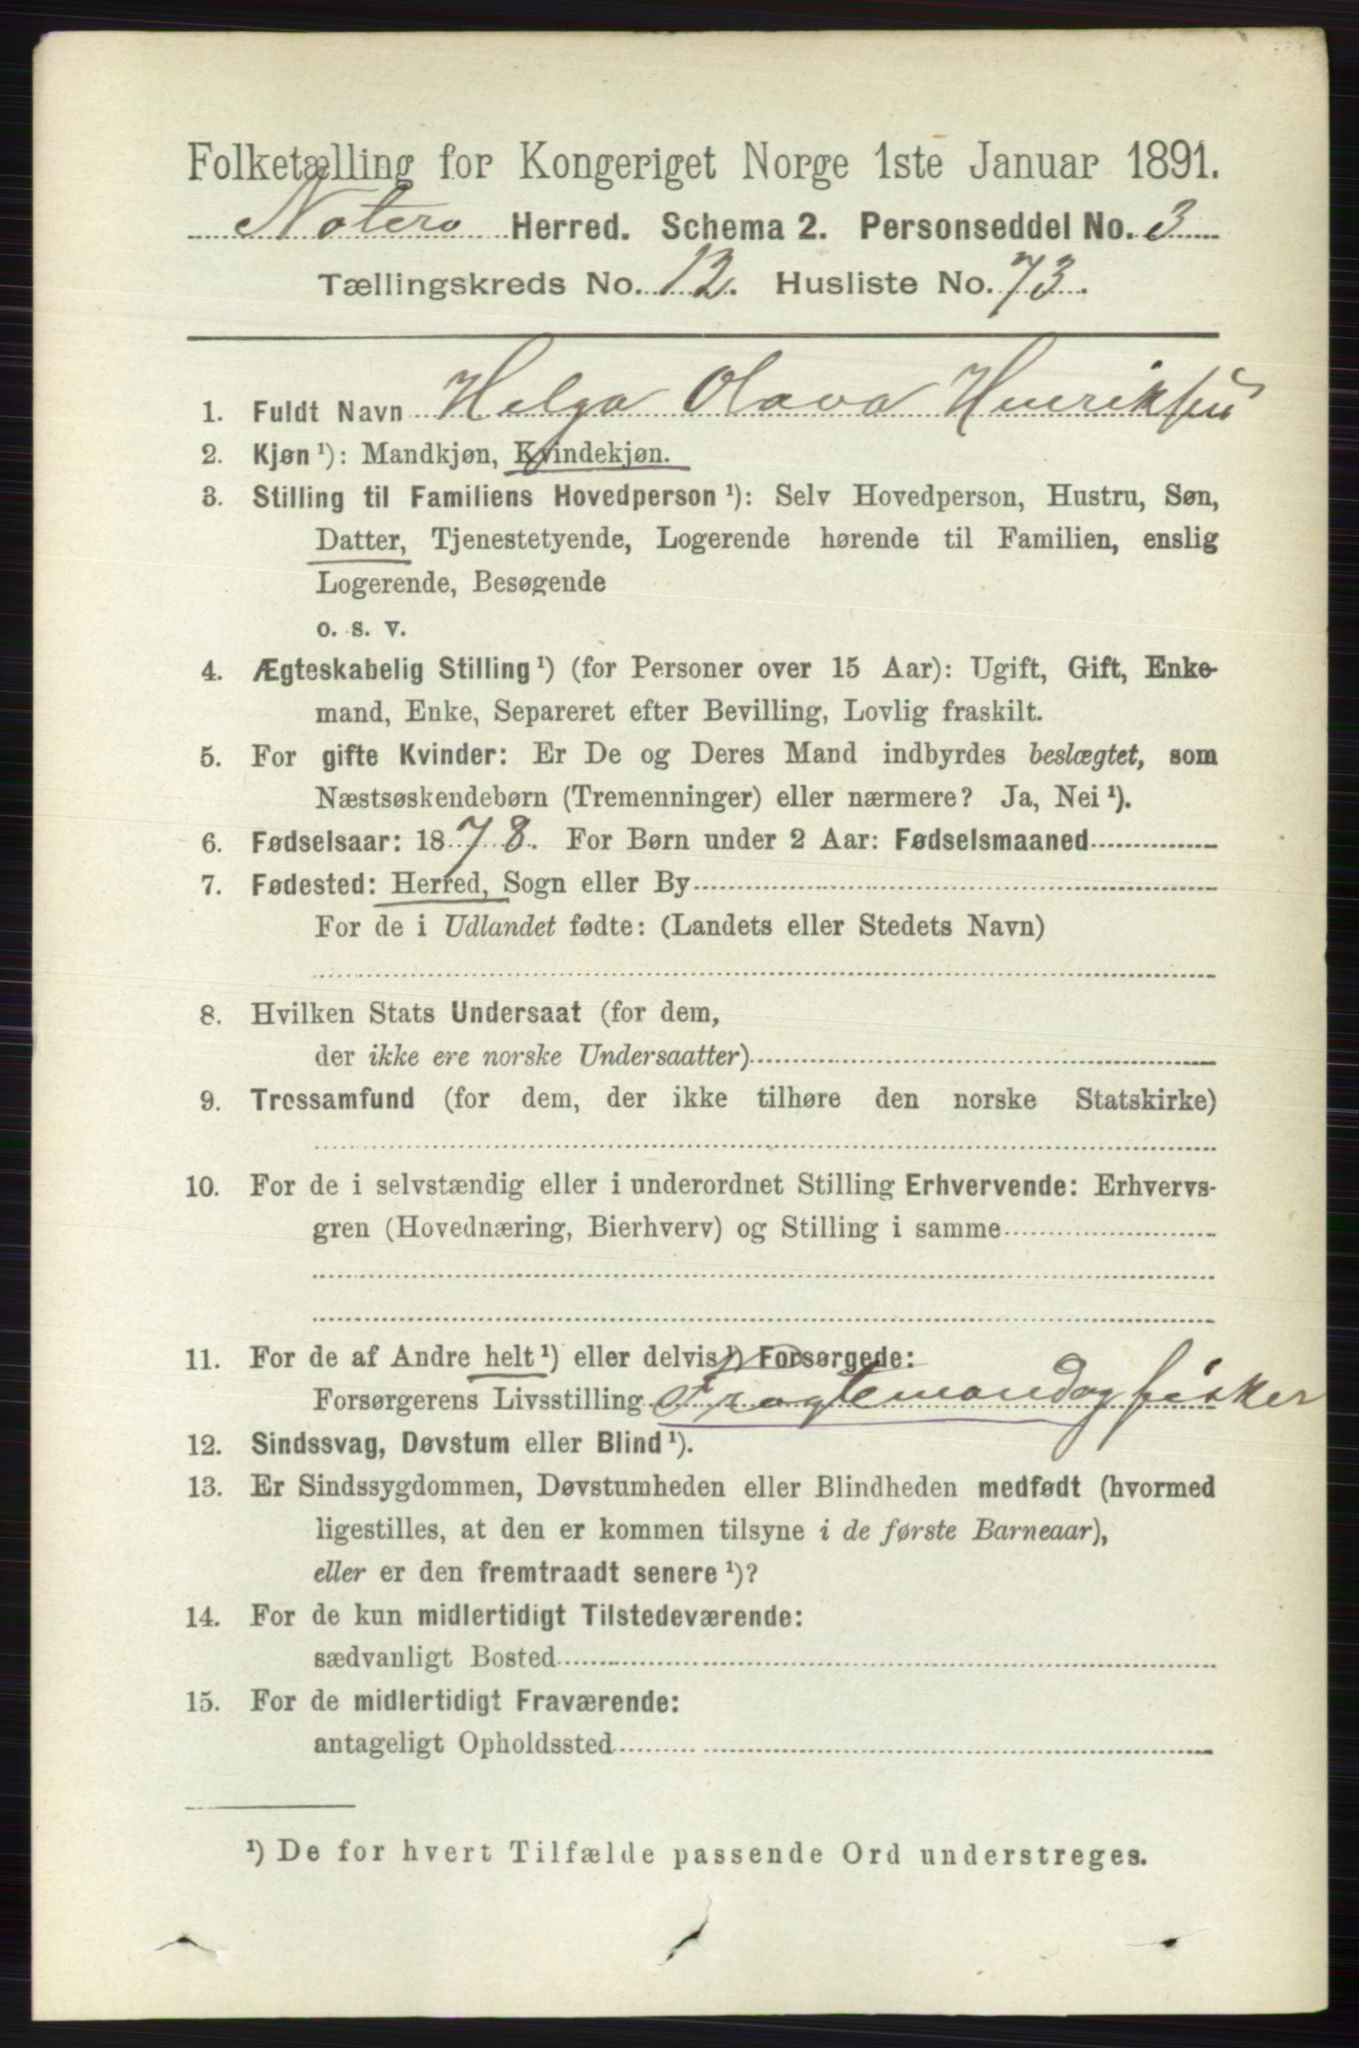 Folketælling for Kongeriget Norge 1ste Januar 1891.
Nøterø Herred. Schema 2. Personseddel No. 3
Tællingskreds No. 12. Husliste No. 73.
1. Fuldt Navn Helga Olava Henriksen
2. Kjøn ¹): Mandkjøn, Kvindekjøn.
3. Stilling til Familiens Hovedperson ¹): Selv Hovedperson, Hustru, Søn,
Datter, Tjenestetyende, Logerende hørende til Familien, enslig
Logerende, Besøgende
o. s. v.
4. Ægteskabelig Stilling ¹) (for Personer over 15 Aar): Ugift, Gift, Enke-
mand, Enke, Separeret efter Bevilling, Lovlig fraskilt.
5. For gifte Kvinder: Er De og Deres Mand indbyrdes beslægtet, som
Næstsøskendebørn (Tremenninger) eller nærmere? Ja, Nei ¹).
6. Fødselsaar: 1878. For Børn under 2 Aar: Fødselsmaaned
7. Fødested: Herred, Sogn eller By
For de i Udlandet fødte: (Landets eller Stedets Navn)
8. Hvilken Stats Undersaat (for dem,
der ikke ere norske Undersaatter)
9. Trossamfund (for dem, der ikke tilhøre den norske Statskirke)
10. For de i selvstændig eller i underordnet Stilling Erhvervende: Erhvervs-
gren (Hovednæring, Bierhverv) og Stilling i samme
11. For de af Andre helt ¹) eller delvis ¹) Forsørgede:
Forsørgerens Livsstilling Fragtemand og fisker
12. Sindssvag, Døvstum eller Blind ¹).
13. Er Sindssygdommen, Døvstumheden eller Blindheden medfødt (hvormed
ligestilles, at den er kommen tilsyne i de første Barneaar),
eller er den fremtraadt senere ¹)?
14. For de kun midlertidigt Tilstedeværende:
sædvanligt Bosted
15. For de midlertidigt Fraværende:
antageligt Opholdssted
¹) De for hvert Tilfælde passende Ord understreges.